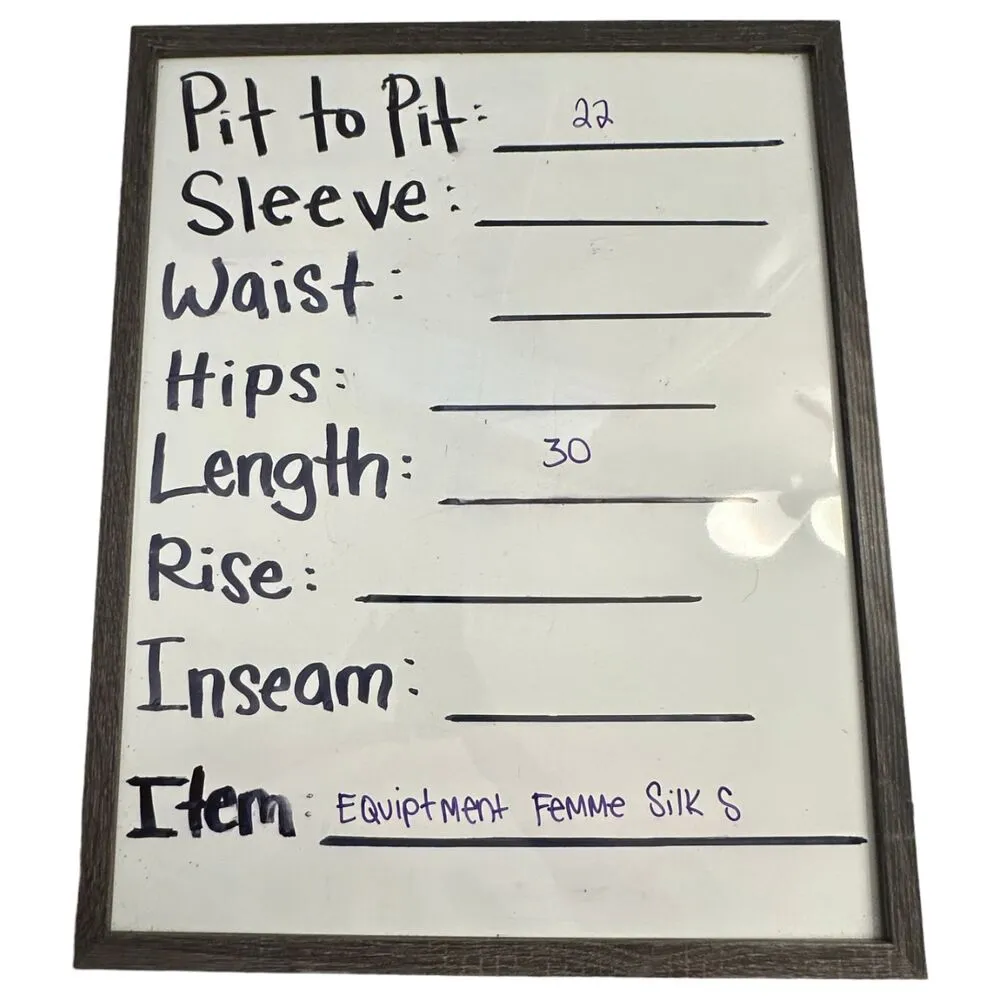 Pit to Pit: 22
Sleeve:
Waist:
Hips:
Length: 30
Rise:
Inseam:
Item: Equiptment Femme Silk S